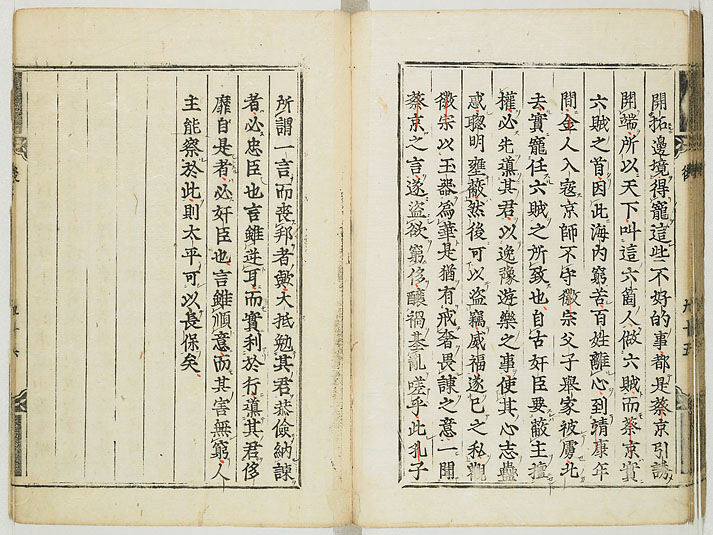 開拓邊境得寵這些不好的事都是蔡京引誘
開端所以天下叫這六箇人做六賊而蔡京實
六賊之首因此海內窮苦百姓離心到靖康年
間金人入寇京師不守徽宗父子舉家被虜北
去實寵任六賊之所致也自古奸臣要蔽主擅
權必先導其君以逸豫遊樂之事使其心志蠱
惑聰明壅蔽然後可以盜竊威福遂已之私觀
徽宗以玉器為華是猶有戒奢畏諫之意一聞
蔡京之言遂盜欲窮侈釀禍基亂嗟乎此孔子
所謂一言而喪邦者歟大抵勉其君恭儉納諫
者必忠臣也言雖逆耳而實利於行導其君侈
靡自是者必奸臣也言雖順意而其害無窮人
主能察於此則太平可以長保矣